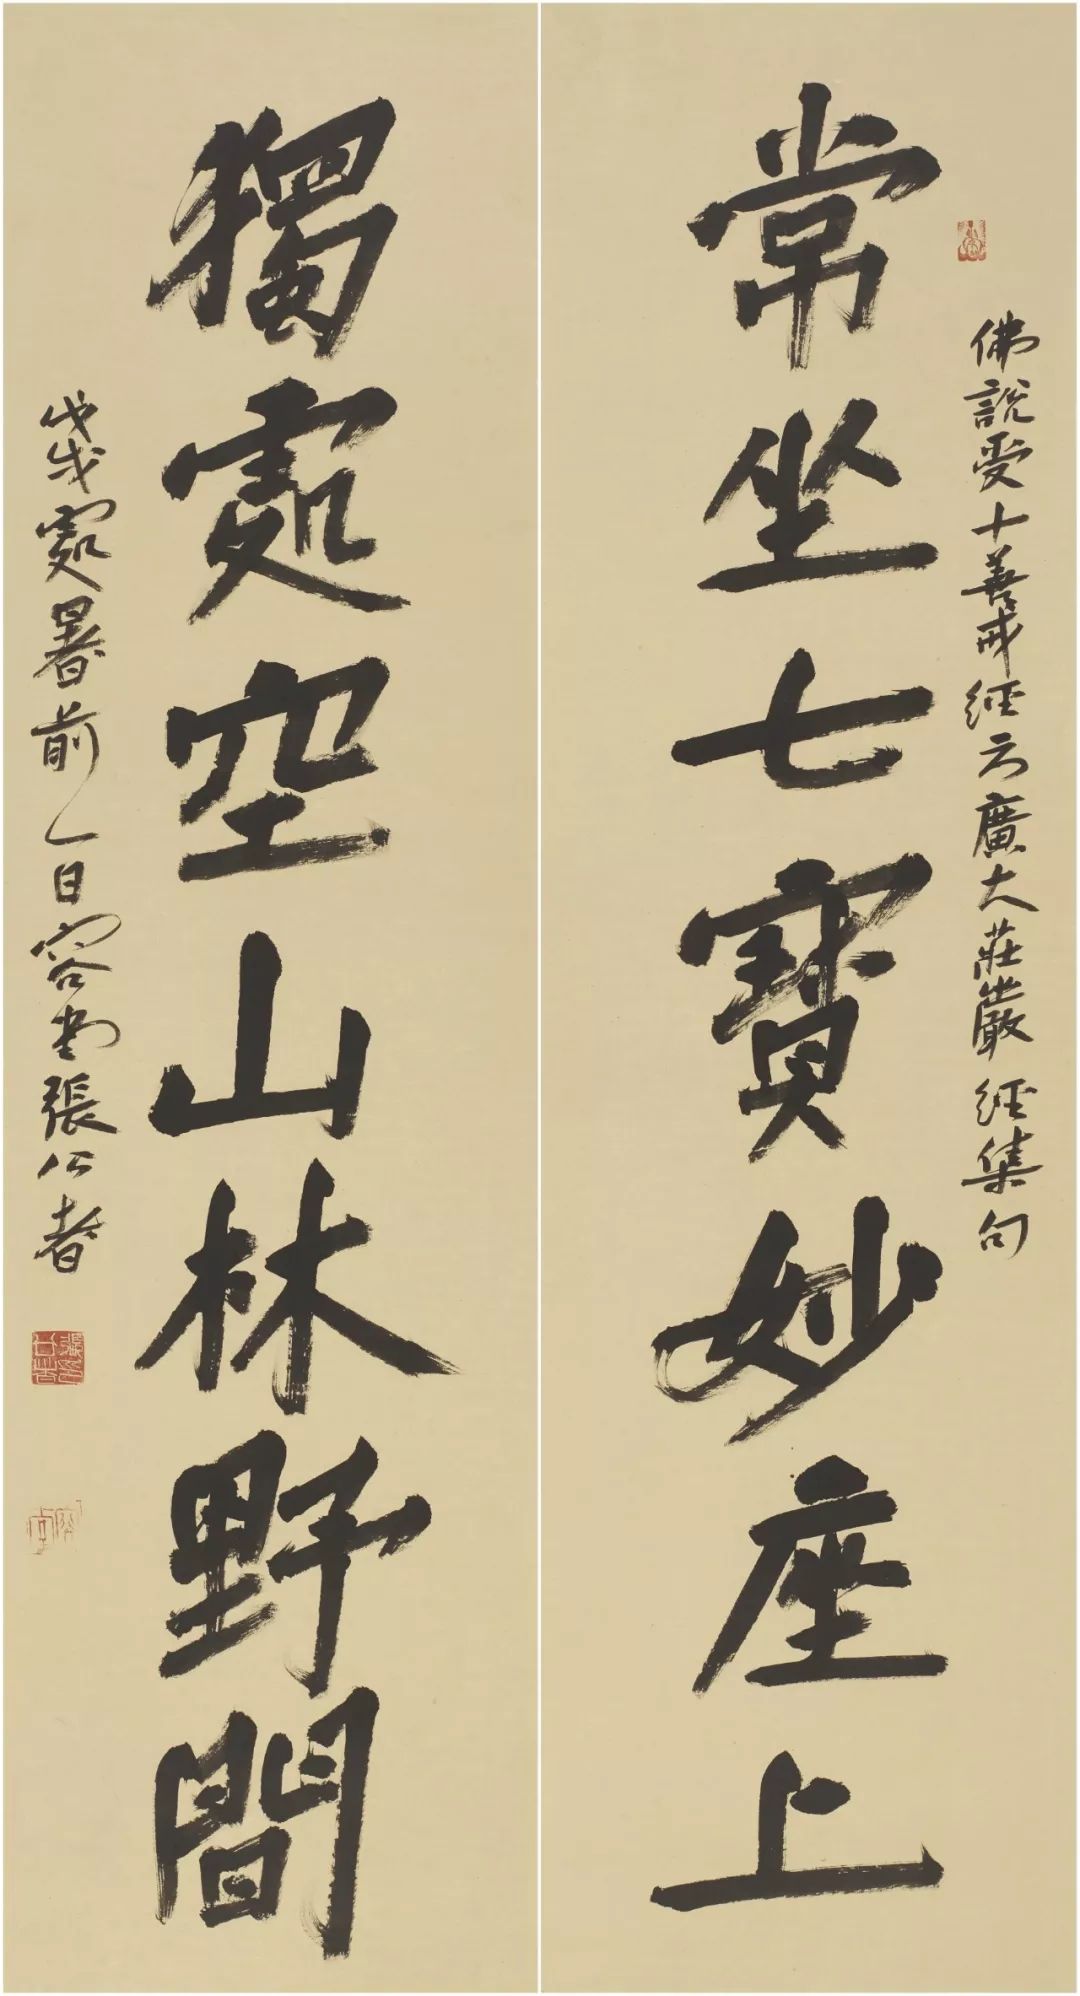 佛說受十善戒經云廣大莊嚴經集句
常坐七寶妙座上
獨處空山林野間
戊戌處暑前一日容堂張公者